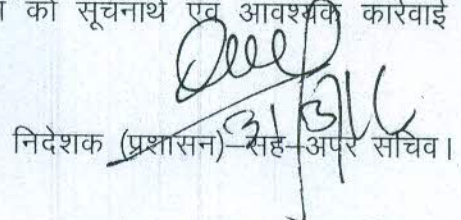 को सूचनार्थ एवं आवश्यक कार्रवाई
31/3/16
निदेशक (प्रशासन)–सह–अपर सचिव।